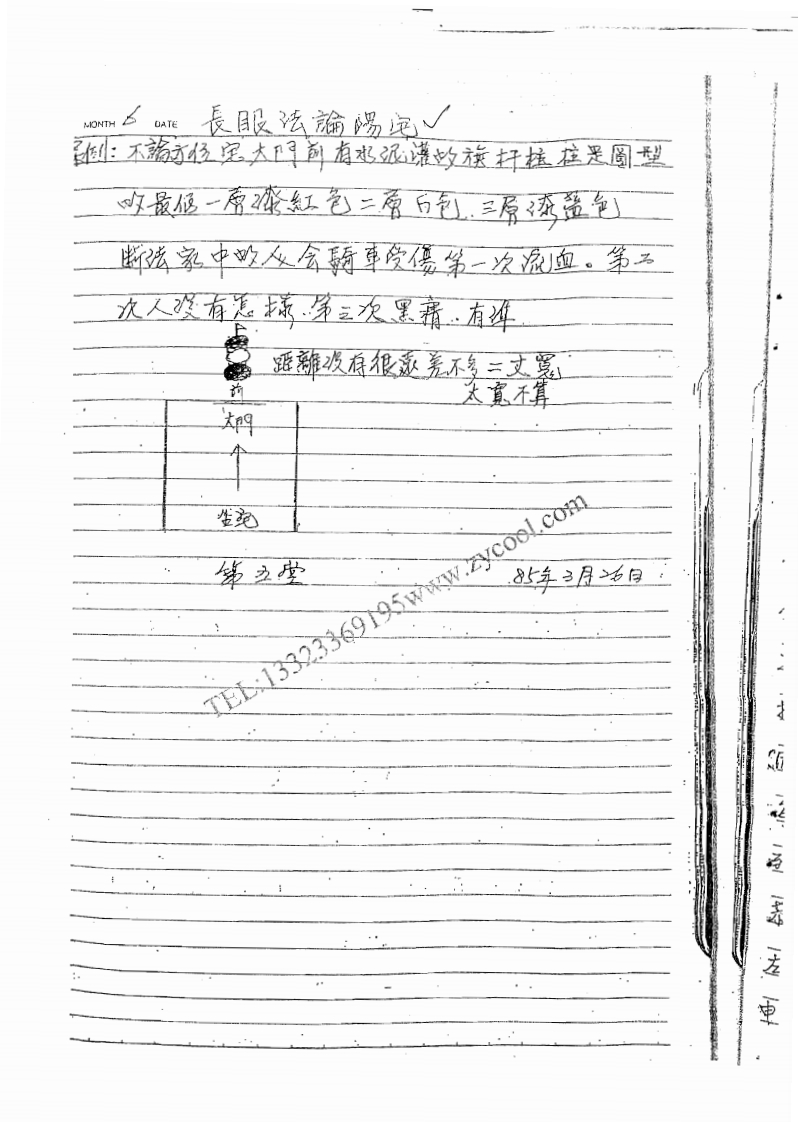 MONTH 6 DATE 長眼法論陽宅✓
例：不論方位宅大門前有水泥灌的旗杆柱 柱是圓型
的最低一層漆紅色二層白色．三層漆藍色
斷法家中的人会騎車受傷第一次流血。第二
次人沒有怎樣．第三次黑青．有準
距離沒有很遠差不多二丈寬
太寬不算
前
大門
坐宅
第五堂 85年3月26日
TEL:13323369195www.zycool.com